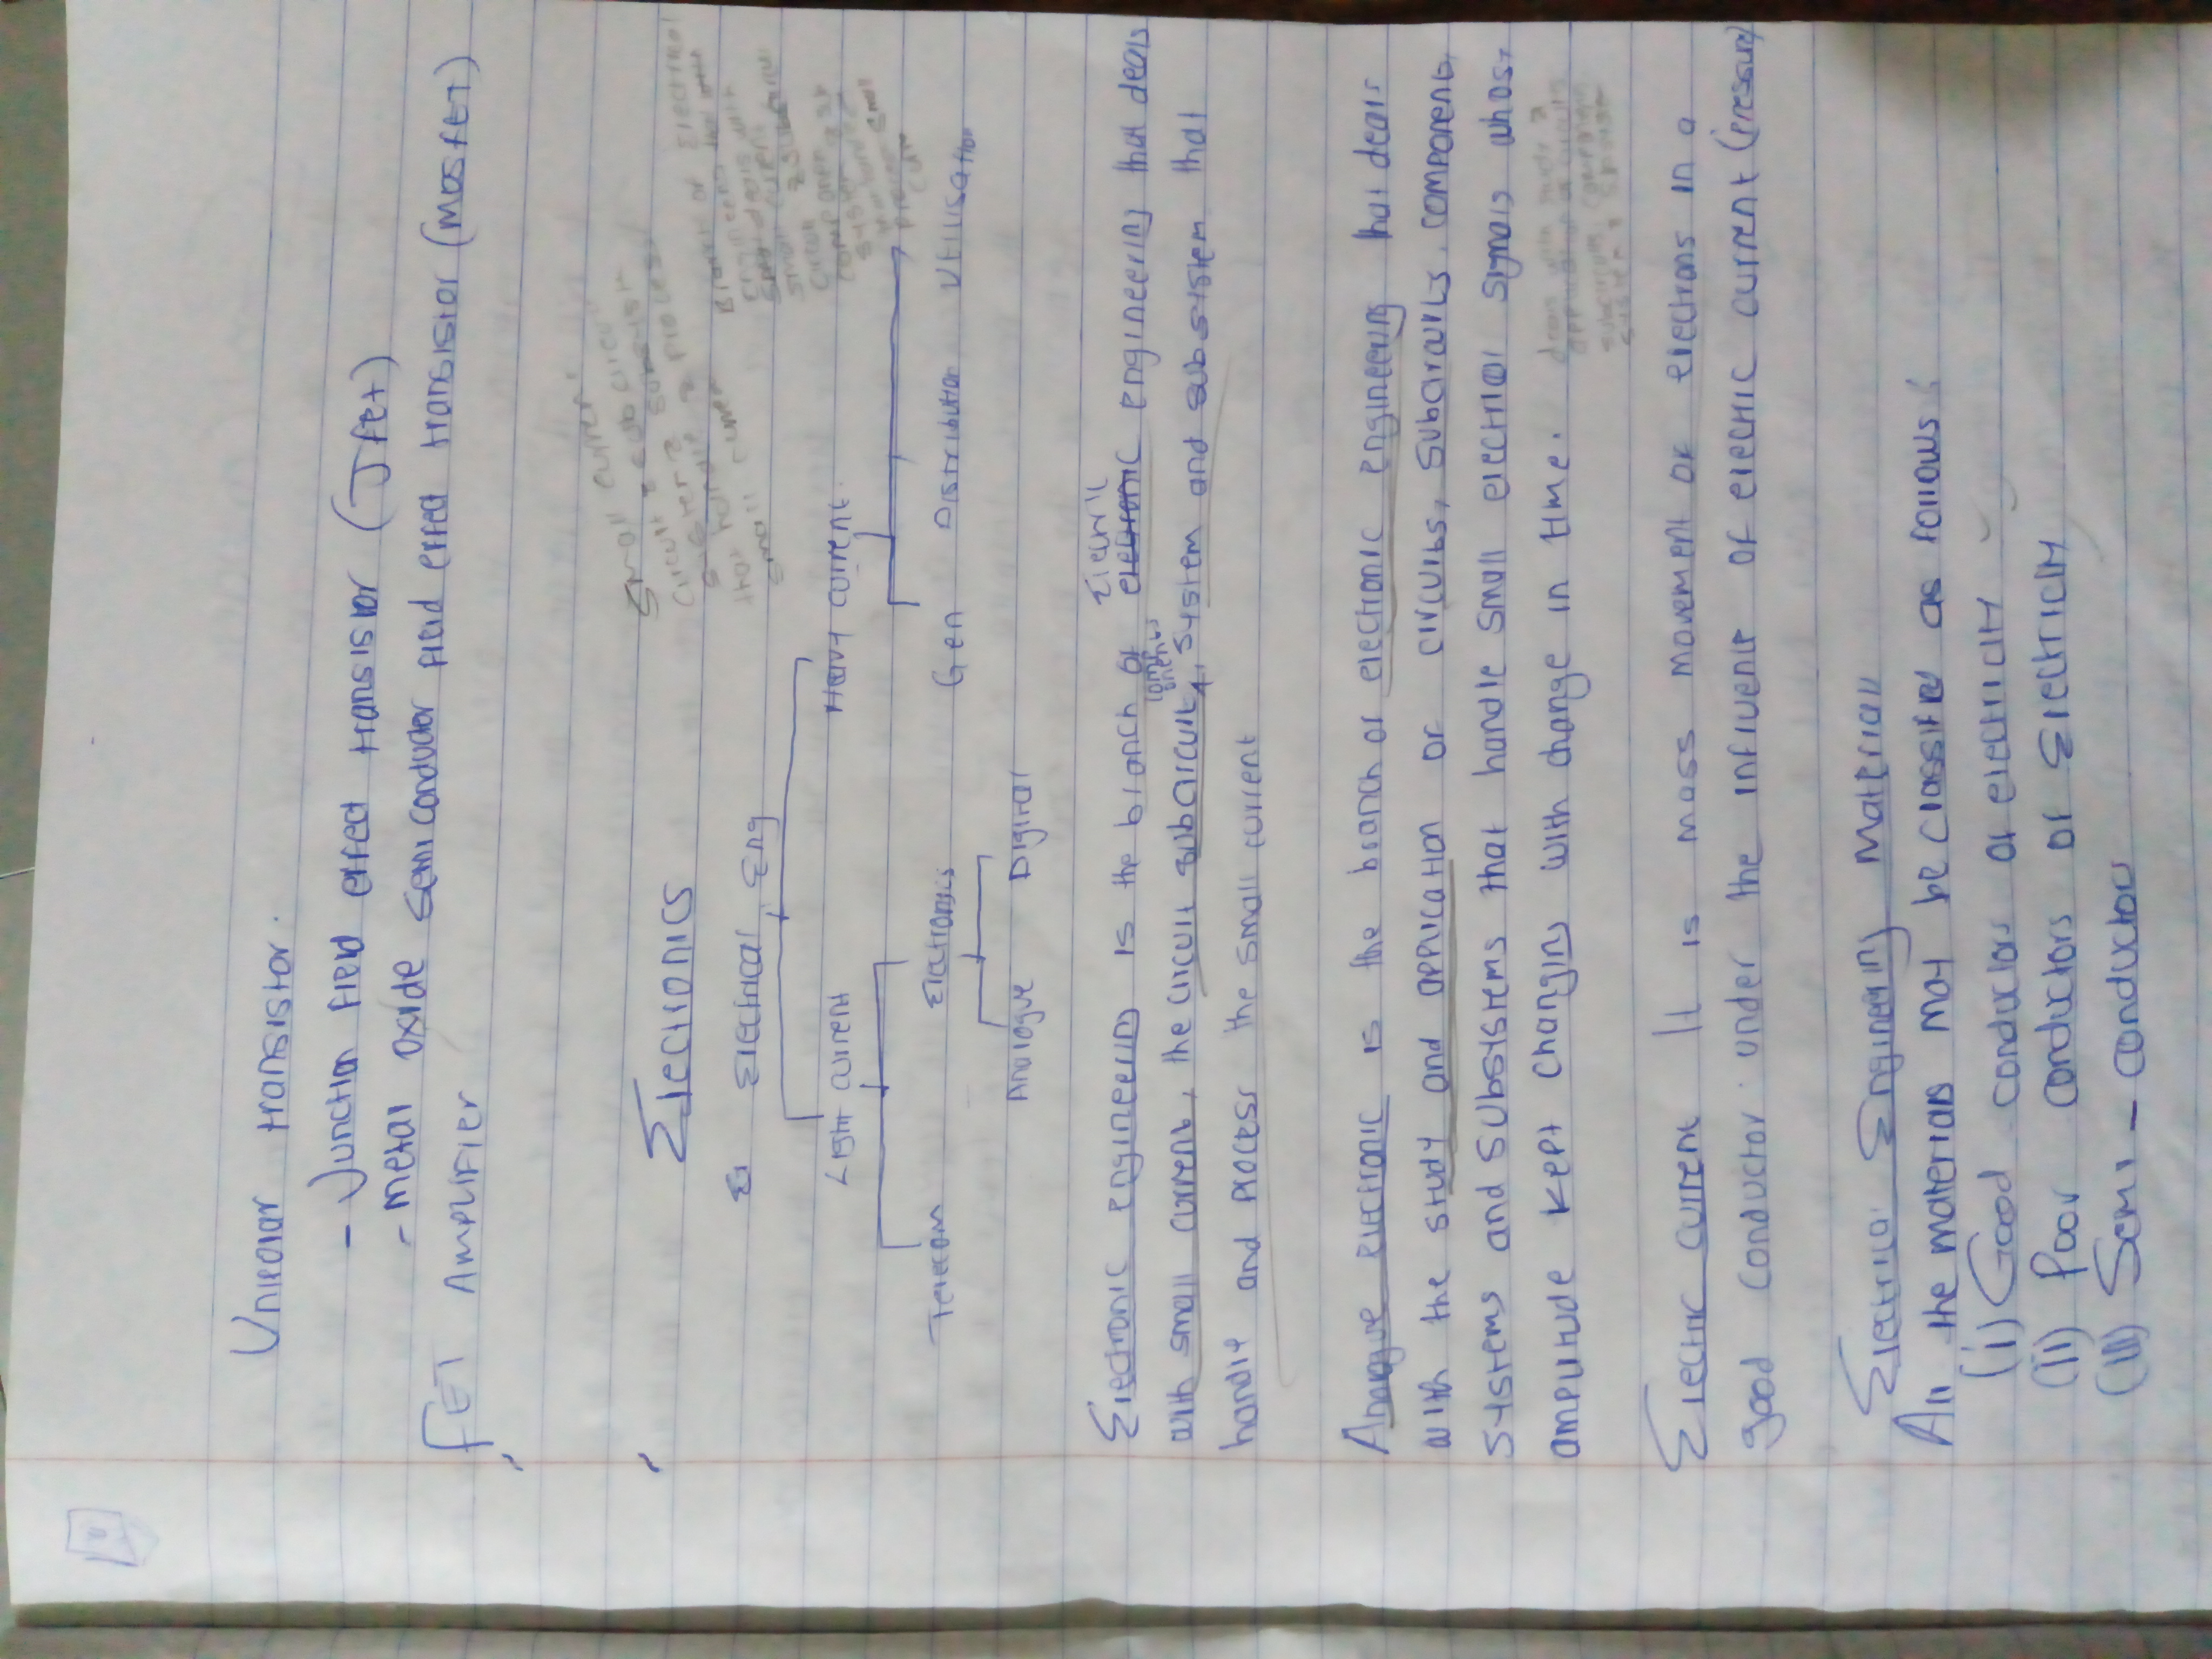 Unipolar transistor.
- Junction field effect transistor (Jfet)
- metal oxide semiconductor field effect transistor (MOSFET)
FET Amplifier
Small current
circuit & subcircuit
system & subsyst
that handle & process
small current
Electronics
Electrical Eng
Branch of Electrical
small current
circuit & subcircui
componen
system
process small
Light current Heavy current
Telecom Electronics Gen Distribution Utilisation
Analogue Digital
Electric
Electronic engineering is the branch of electronic engineering that deals
components
with small current, the circuit subcircuit, system and subsystem that
handle and process the small current
Analogue electronic is the branch of electronic engineering that deals
with the study and application of circuits, subcircuits, component,
systems and subsystems that handle small electrical signals whose
amplitude kept changing with change in time.
deals with study &
application of circuits
subcircuits, componen
system &
Electric current It is mass movement of electrons in a
good conductor under the influence of electric current (pressure)
Electrical Engineering Materials
All the materials may be classified as follows:
(i) Good conductors of electricity
(ii) Poor conductors of Electricity
(iii) Semi-conductors